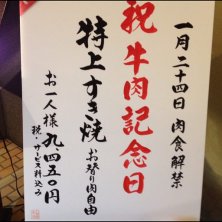 一月二十四日 肉食解禁
祝 牛肉記念日
特上すき焼 お替り肉自由
お一人様 九四五〇円
税・サービス料込み